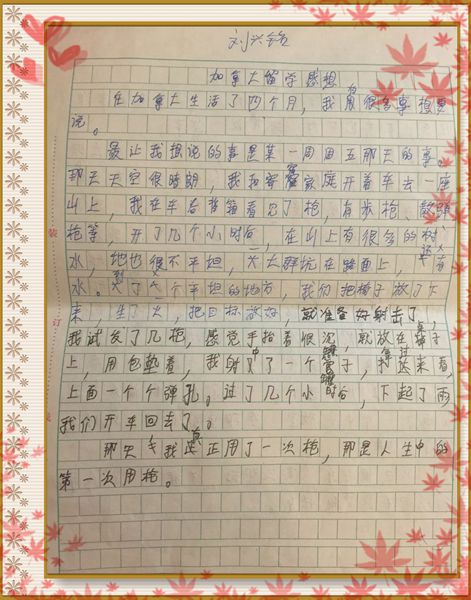 刘兴铭
加拿大留学感想
在加拿大生活了四个月，我有很多事想要
说。
最让我想说的事是某一周周五那天的事。
那天天空很晴朗，我和寄宿家庭开着车去一座
山上，我在车后背箱看见了枪，有步枪、
枪等，开了几个小时后，在山上有很多的树
水，地也很不平坦，大大群坑在路面上，
水。到了一个平坦的地方，我们把椅子放了下
来，生了火，把目标放好，就准备好射击了，
我试发了几枪，感觉手抬着很沉，就放在桌子
上，用包垫着，我射中了一个罐子，拿过来看，
上面一个个弹孔。过了几个小时后，下起了雨
我们开车回去了。
那天我真正用了一次枪，那是人生中的
第一次用枪。
装
订